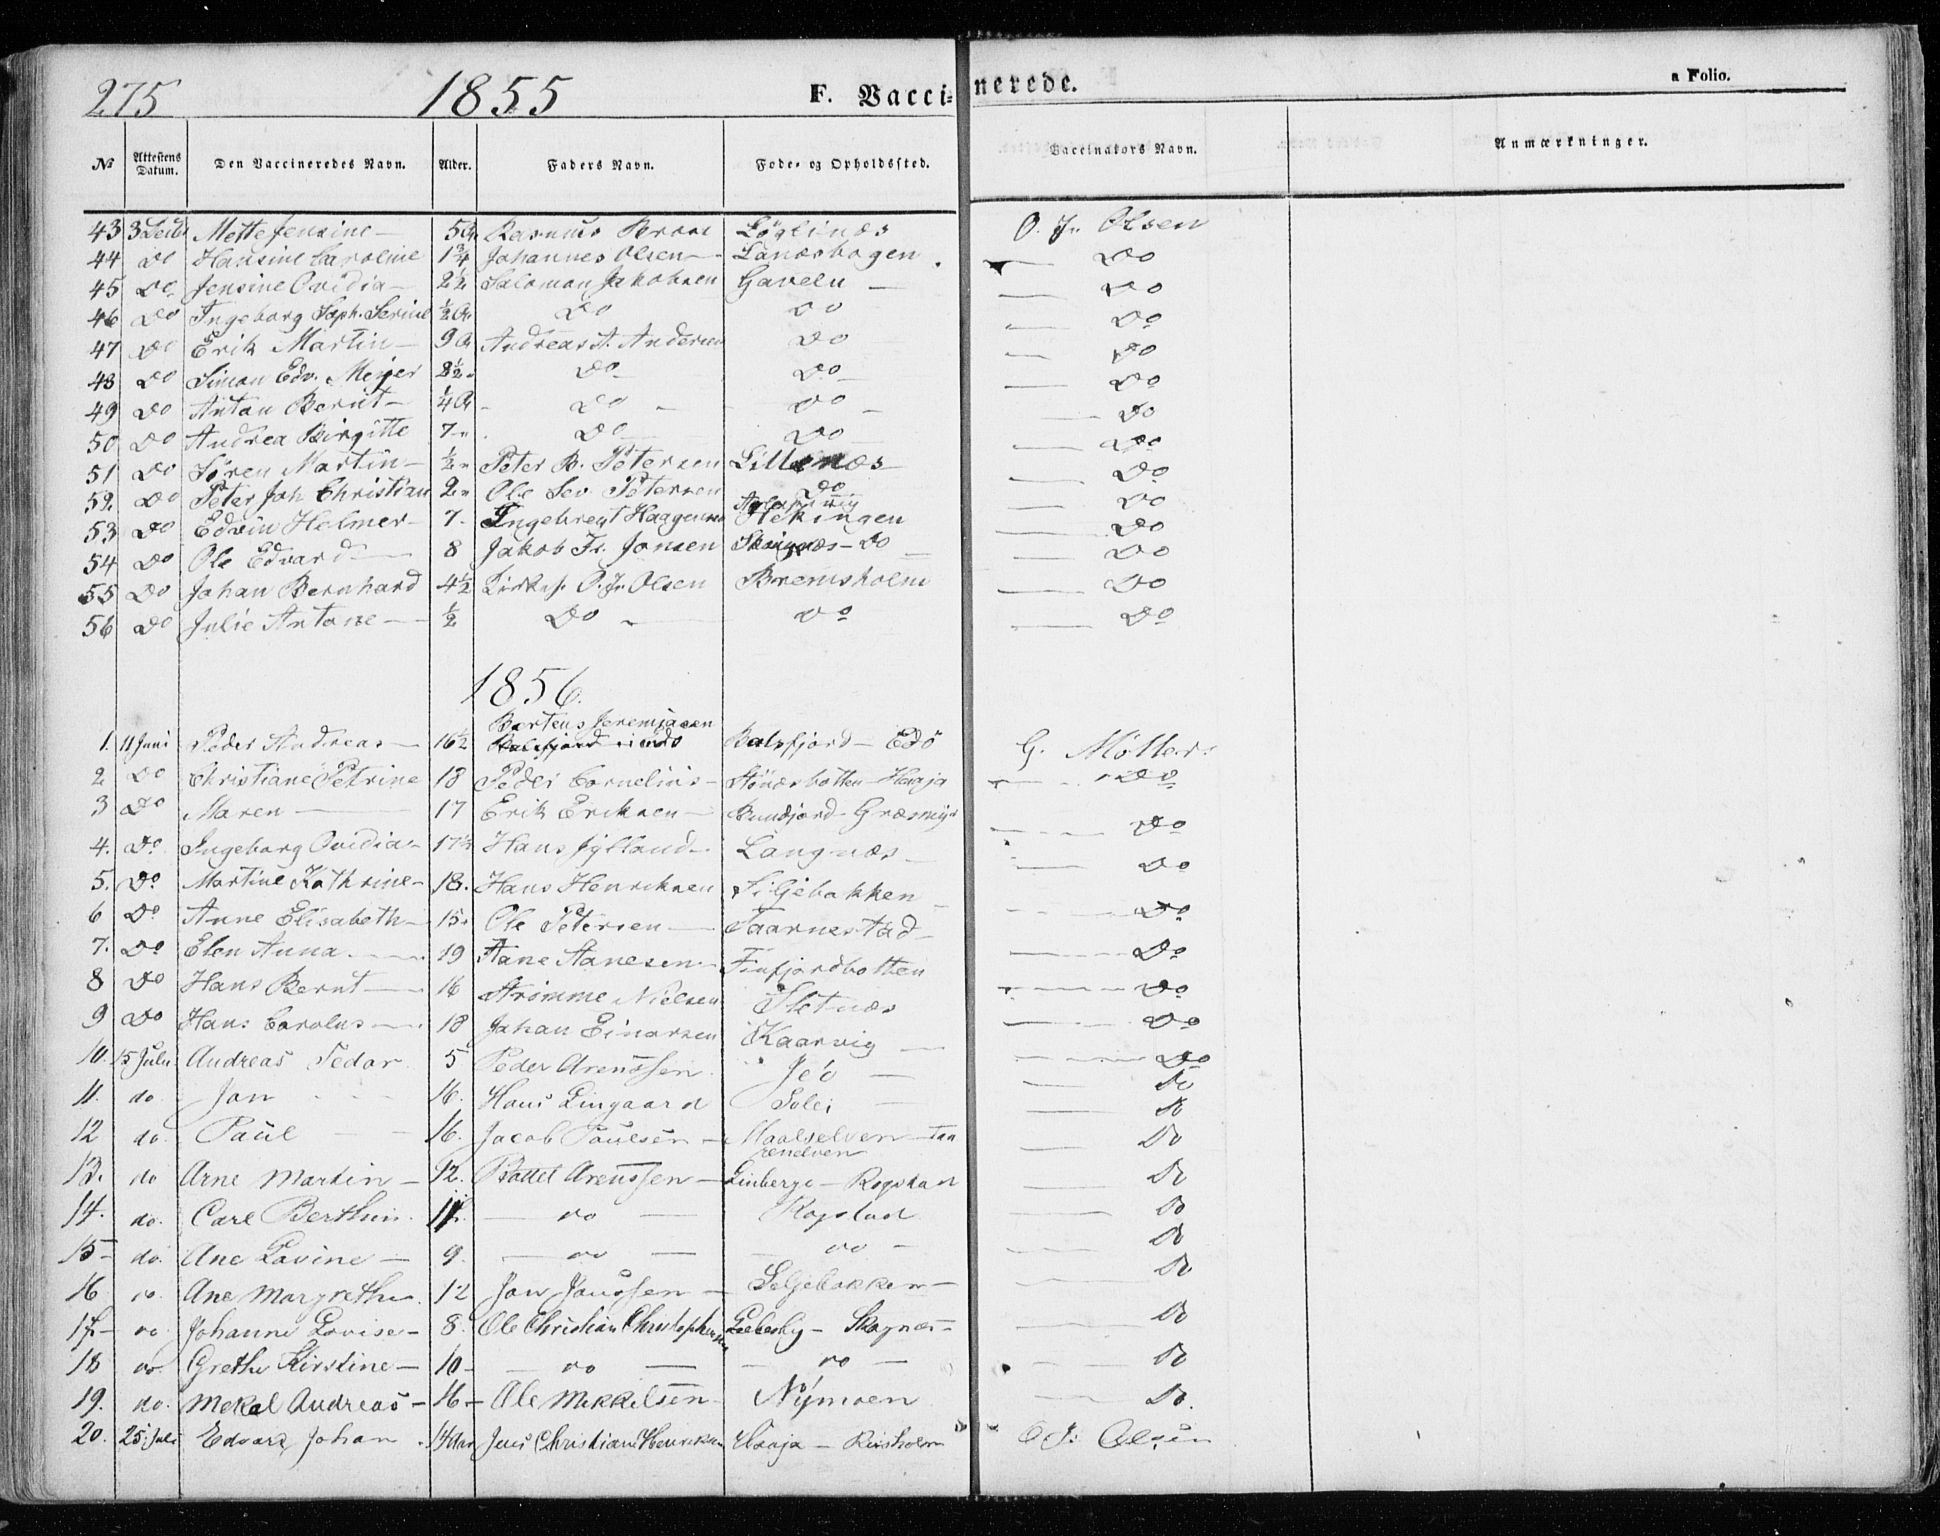 275 1855 F. Vaccinerede. a Folio.
No Attestens Datum. Den Vaccineredes Navn. Alder. Faders Navn. Føde- og Opholdssted. Vaccinators Navn. Anmærkninger.
43 Mette Jensine 5 Rasmus Løglinæs O. Jr. Olsen
44 Do Hansine Caroline 1¾ Johannes Olsen Lanæsbogen Do
45 Do Jensine Ovidia 2½ Salomon Jakobsen Gaveln Do
46 Do Ingeborg Soph. Serine ½ Do Do Do
47 Do Erik Martin 9 Andreas A. Andersen Do Do
48 Do Simon Edv. Meyer 8½ Do Do Do
49 Do Anton Bernt ¼ Do Do Do
50 Do Andrea Birgitte 7 Do Do Do
51 Do Søren Martin ½ Peter B. Petersen Lillenæs Do
52 Do Peter Joh Christian 2 Ole Sev. Petersen Do Do
53 Do Edvin Helmer 7 Ingebregt Haagensen Hekingen Do
54 Do Ole Edvard 8 Jakob Fr. Jonsen Do Do
55 Do Johan Bernhard 4½ O. Jr. Olsen Bremsholm Do
56 Do Julie Antone ½ Do Do Do
1856.
Bertens Jeremiasen
1. 11 Juni Peder Andreas 16½ Balsfjord Edö G. Møller
2 Do Christiane Petrine 18 Peder Cornelius Haaja Do
3 Do Maren 17 Erik Eriksen Græsmyr Do
4. Do Ingeborg Ovidia 17½ Hans Jylland Langnæs Do
5. Do Martine Kathrine 18. Hans Henriksen Siljebakken Do
6 Do Anne Elisabeth 15 Ole Petersen Taarnestad Do
7. Do Elen Anna 19 Aane Aanesen Finfjordbotten Do
8 Do Hans Bernt 16 Strømme Nielsen Sletnæs Do
9 Do Hans Carolus 18 Johan Einarsen Kaarvig Do
10. 15 Julii Andreas Pedar 5 Peder Arentssen Do
11. do Jon 16. Hans Lingaard Solei Do
12 do. Paul 16. Jacob Paulsen Maalselven Do
13. do Arne Martin 12. Arentssen Rogstad Do
14. do. Carl do Rogstad Do
15 do. Ane Lovine 9. do do Do
16 do. Ane Margrethe 12 Jon Jonssen Seljebakken Do
17 do Johanne Lovise 8. Ole Christian Christophersen Skognæs Do
18 do Grethe Kirstine 10 do do Do
19. do. Mekal Andreas 16 Ole Mikkelsen Nymoen Do.
20. 25 Juli Edvard Johan Jens Christian Henriksen Haaja O J. Olsen